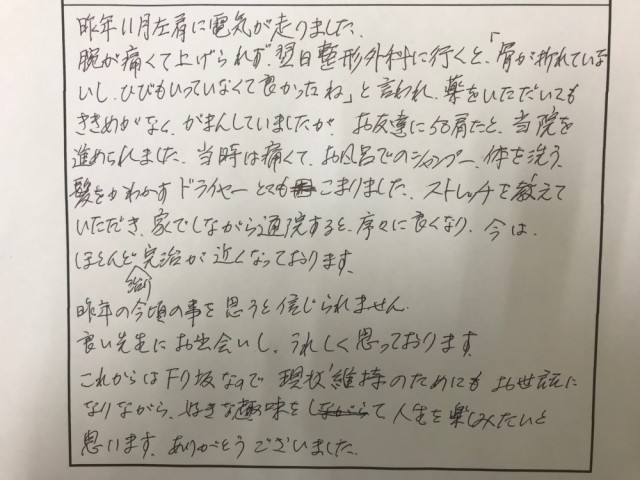 昨年11月左肩に電気が走りました.
腕が痛くて上げられず.翌日整形外科に行くと、「骨が折れていな
いし.ひびもいっていなくて良かったね」と言われ.薬をいただいても
ききめがなく.がまんしていましたが. お友達に50肩だと.当院を
進められました.当時は痛くて.お風呂でのシャンプー.体を洗う.
髪をかわかす ドライヤー とても こまりました.ストレッチを教えて
いただき.家でしながら通院すると.序々に良くなり. 今は.
ほとんど完治が近くなっております.
昨年の今頃の事を思うと信じられません.
良い先生にお出会いし.うれしく思っております.
これからは下り坂なので 現状維持のためにも お世話に
なりながら.好きな趣味をしながらて 人生を楽しみたいと
思います.ありがとうございました.